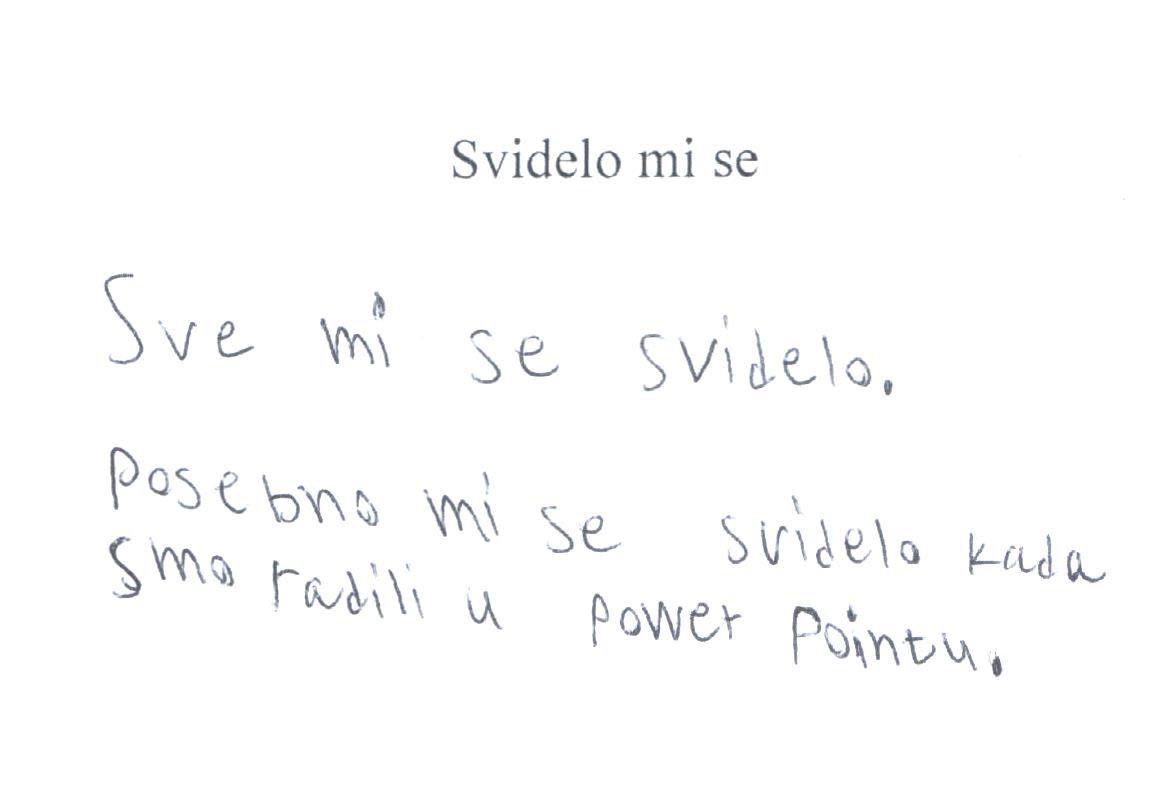 Svidelo mi se
Sve mi se svidelo.
Posebno mi se svidelo kada
smo radili u power pointu.